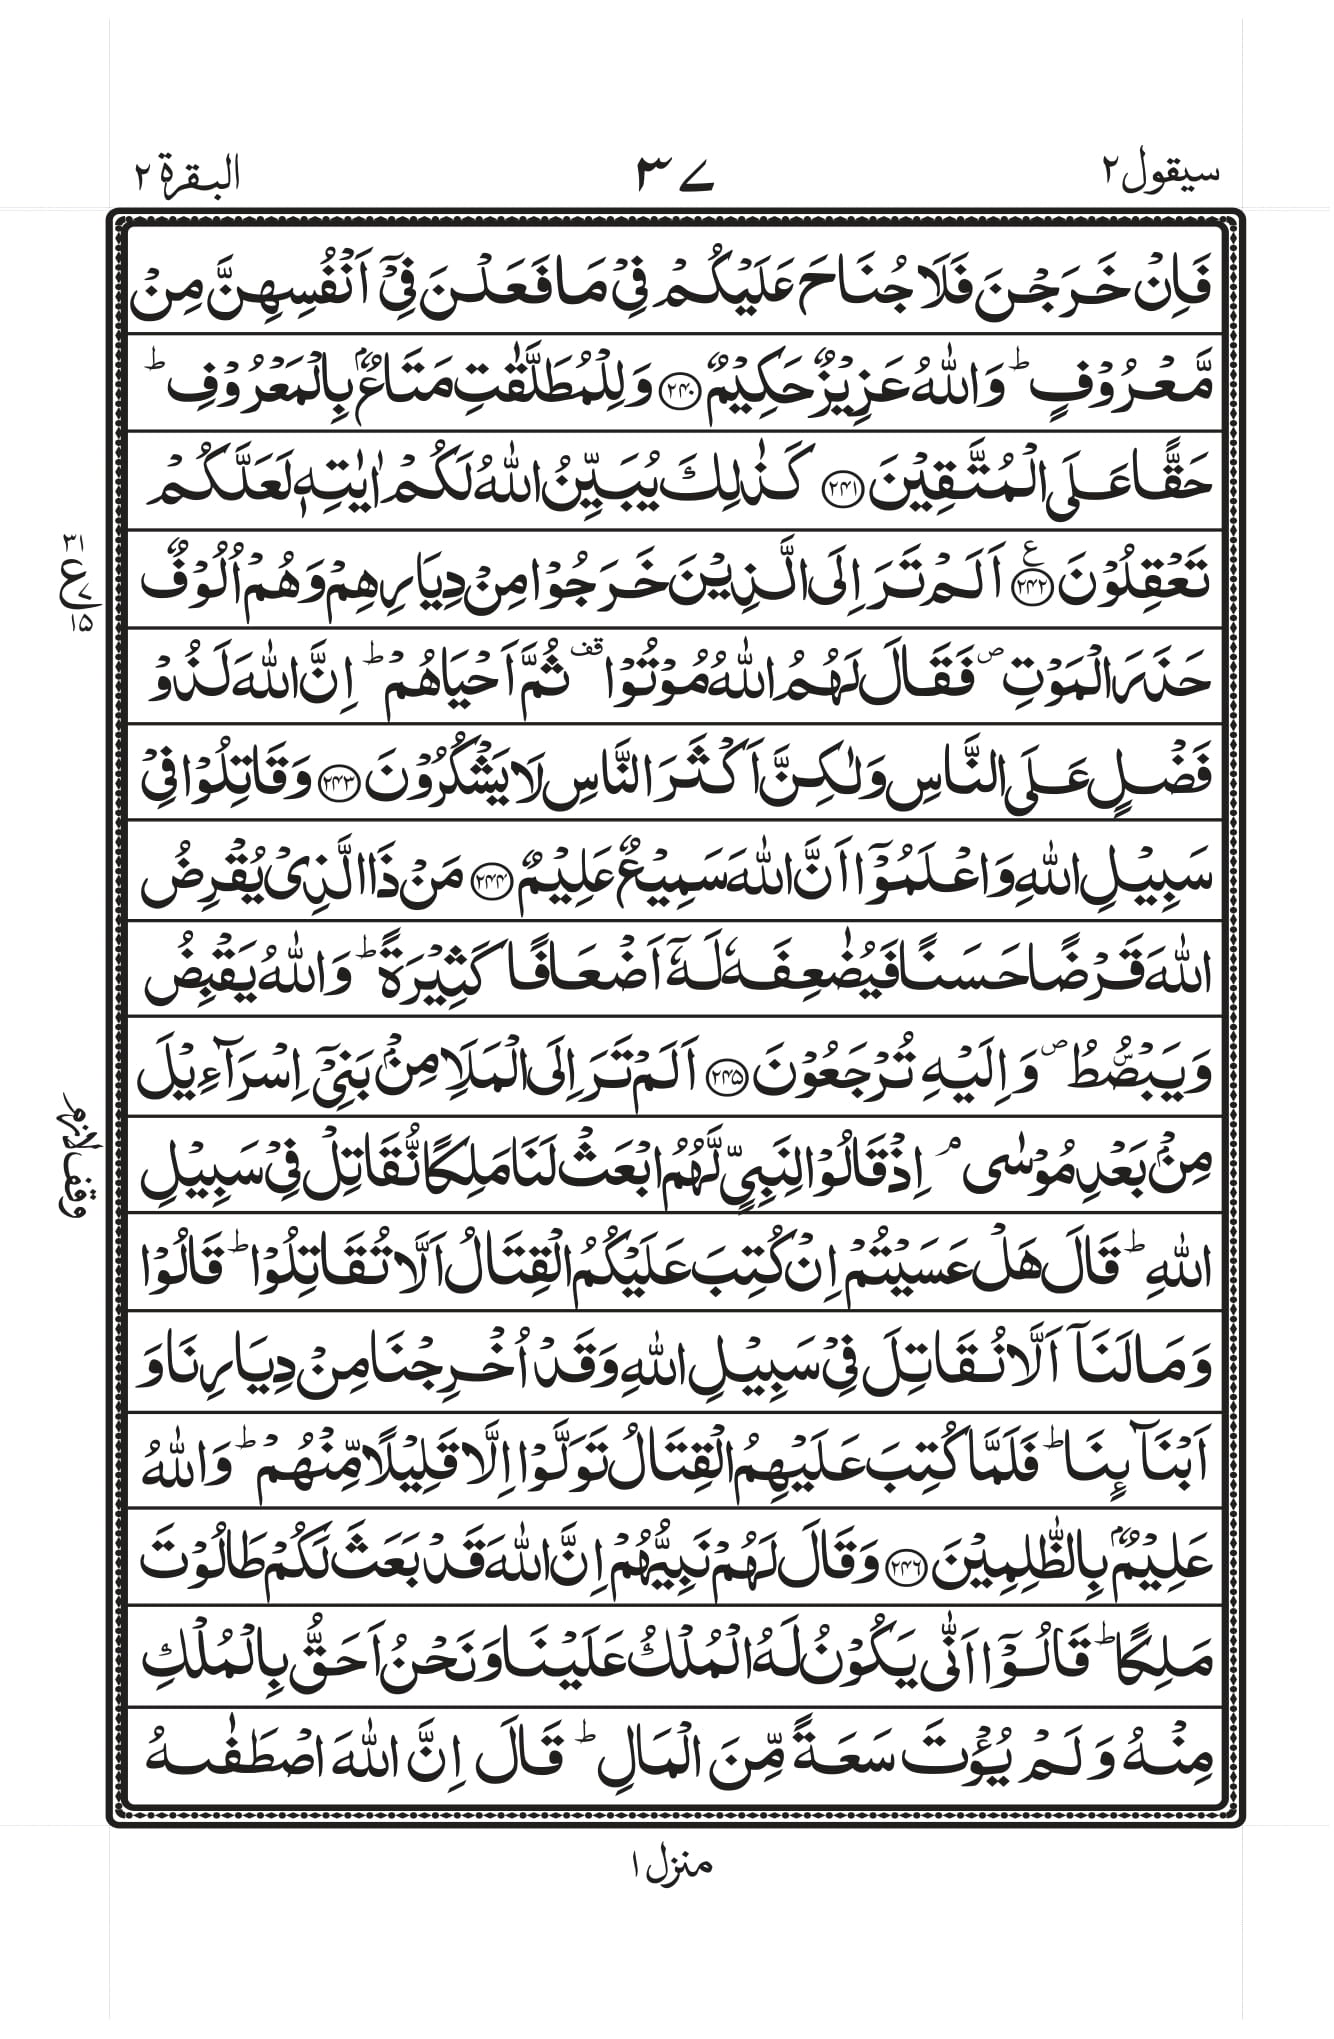 سیقول ۲
۳۷
البقرة ۲
فَاِنْ خَرَجْنَ فَلَا جُنَاحَ عَلَیْكُمْ فِیْ مَا فَعَلْنَ فِیْۤ اَنْفُسِهِنَّ مِنْ
مَّعْرُوْفٍ ؕ وَاللّٰهُ عَزِیْزٌ حَكِیْمٌ ﴿۲۴۰﴾ وَلِلْمُطَلَّقٰتِ مَتَاعٌۢ بِالْمَعْرُوْفِ ؕ
حَقًّا عَلَی الْمُتَّقِیْنَ ﴿۲۴۱﴾ كَذٰلِكَ یُبَیِّنُ اللّٰهُ لَكُمْ اٰیٰتِهٖ لَعَلَّكُمْ
تَعْقِلُوْنَ ﴿۲۴۲﴾ ع اَلَمْ تَرَ اِلَی الَّذِیْنَ خَرَجُوْا مِنْ دِیَارِهِمْ وَهُمْ اُلُوْفٌ
۳۱
ع ۷
۱۵
حَذَرَ الْمَوْتِ ص فَقَالَ لَهُمُ اللّٰهُ مُوْتُوْا قف ثُمَّ اَحْیَاهُمْ ؕ اِنَّ اللّٰهَ لَذُوْ
فَضْلٍ عَلَی النَّاسِ وَلٰكِنَّ اَكْثَرَ النَّاسِ لَا یَشْكُرُوْنَ ﴿۲۴۳﴾ وَقَاتِلُوْا فِیْ
سَبِیْلِ اللّٰهِ وَاعْلَمُوْۤا اَنَّ اللّٰهَ سَمِیْعٌ عَلِیْمٌ ﴿۲۴۴﴾ مَنْ ذَا الَّذِیْ یُقْرِضُ
اللّٰهَ قَرْضًا حَسَنًا فَیُضٰعِفَهٗ لَهٗۤ اَضْعَافًا كَثِیْرَةً ؕ وَاللّٰهُ یَقْبِضُ
وَیَبْصُۜطُ ص وَاِلَیْهِ تُرْجَعُوْنَ ﴿۲۴۵﴾ اَلَمْ تَرَ اِلَی الْمَلَاِ مِنْۢ بَنِیْۤ اِسْرَآءِیْلَ
وقف لازم
مِنْۢ بَعْدِ مُوْسٰی م اِذْ قَالُوْا لِنَبِیٍّ لَّهُمُ ابْعَثْ لَنَا مَلِكًا نُّقَاتِلْ فِیْ سَبِیْلِ
اللّٰهِ ؕ قَالَ هَلْ عَسَیْتُمْ اِنْ كُتِبَ عَلَیْكُمُ الْقِتَالُ اَلَّا تُقَاتِلُوْا ؕ قَالُوْا
وَمَا لَنَاۤ اَلَّا نُقَاتِلَ فِیْ سَبِیْلِ اللّٰهِ وَقَدْ اُخْرِجْنَا مِنْ دِیَارِنَا وَ
اَبْنَآئِنَا ؕ فَلَمَّا كُتِبَ عَلَیْهِمُ الْقِتَالُ تَوَلَّوْا اِلَّا قَلِیْلًا مِّنْهُمْ ؕ وَاللّٰهُ
عَلِیْمٌۢ بِالظّٰلِمِیْنَ ﴿۲۴۶﴾ وَقَالَ لَهُمْ نَبِیُّهُمْ اِنَّ اللّٰهَ قَدْ بَعَثَ لَكُمْ طَالُوْتَ
مَلِكًا ؕ قَالُوْۤا اَنّٰی یَكُوْنُ لَهُ الْمُلْكُ عَلَیْنَا وَنَحْنُ اَحَقُّ بِالْمُلْكِ
مِنْهُ وَلَمْ یُؤْتَ سَعَةً مِّنَ الْمَالِ ؕ قَالَ اِنَّ اللّٰهَ اصْطَفٰىهُ
منزل ۱